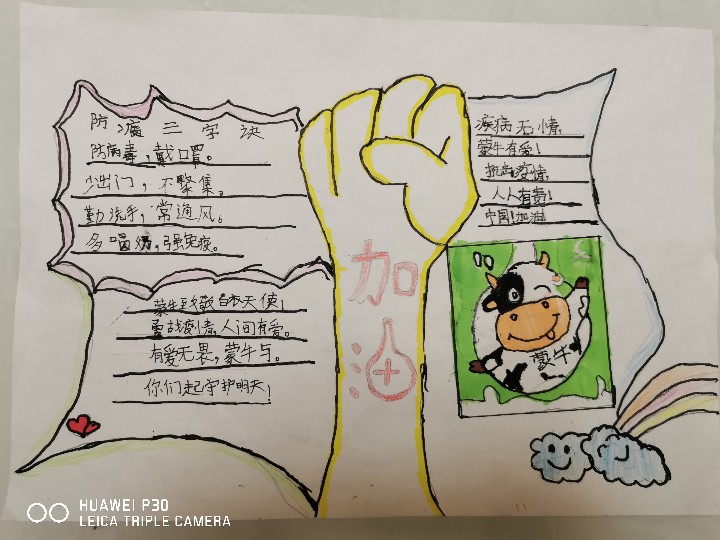 防 疫 三 字 诀
防病毒，戴口罩。
少出门，不聚集。
勤洗手，常通风。
多喝奶，强免疫。
蒙牛致敬白衣天使！
勇战疫情，人间有爱。
有爱无畏，蒙牛与。
你们起守护明天！
加
油
疾病无情，
蒙牛有爱！
抗击疫情，
人人有责！
中国！加油
蒙牛
HUAWEI P30
LEICA TRIPLE CAMERA